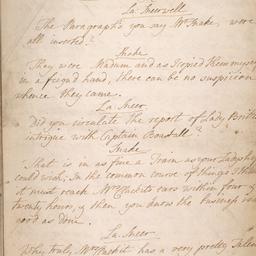 La: Sneerwell
The Paragraphs you say Mr. Snake, were
all inserted?
Snake
They were Madam and as I copied them myself
in a feign'd hand, there can be no suspicion
whence they came.
La: Sneer.
Did you circulate the report of Lady Brittle's
intrigue with Captain Boastall?
Snake
That is in as fine a Train as your Ladyship
could wish, In the common course of things I think
it must reach Mrs. Clackits ears within four &
twenty hours, & then you know the business is as
good as done.
La: Sneer.
Why truly, Mrs. Clackit has a very pretty Talent